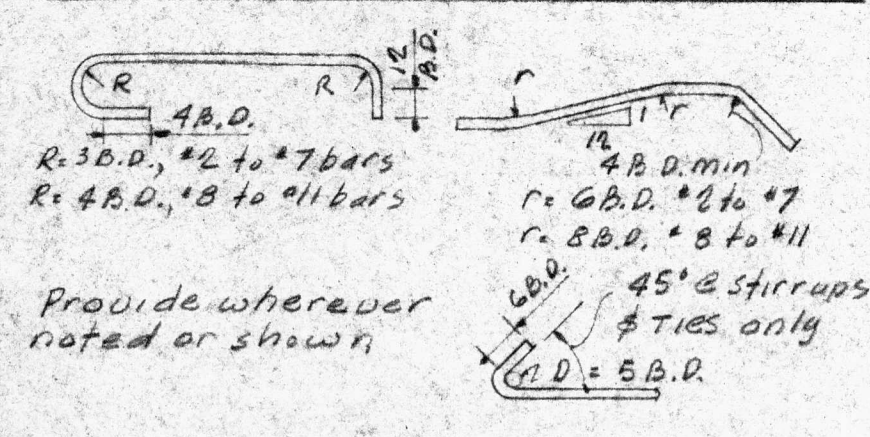 R
R
12
B.D.
4B.D.
R=3B.D., #2 to #7 bars
R= 4B.D., #8 to #11 bars
Provide wherever
noted or shown
r
1
r
12
4B D.min
r= 6B.D. #2 to #7
r= 8B.D. #8 to #11
6B.D.
45° @ stirrups
& Ties only
D = 5 B.D.